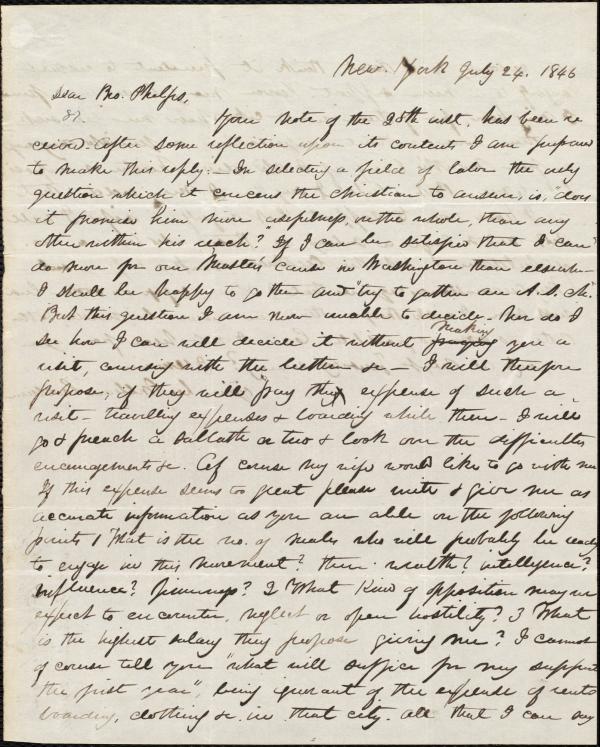 New York July 24. 1846
Dear Bro. Phelps,
Your note of the 20th inst. has been re
ceived. After some reflection upon its contents I am prepared
to make this reply:— In selecting a field of labor the only
question which it concerns the Christian to answer, is, "does
it promise him more usefulness, on the whole, than any
other within his reach?" If I can be satisfied that I can
do more for our Master's cause in Washington than elsewhere
I shall be happy to go there and "try to gather an A. S. Ch."
But this question I am now unable to decide. Nor do I
see how I can well decide it without making you a
visit, conversing with the brethren &c — I will therefore
propose, if they will pay the expense of such a
visit — travelling expenses & boarding while there — I will
go & preach a sabbath or two & look over the difficulties
encouragements &c. Of course my wife would like to go with me
If this expense seems too great please write & give me as
accurate information as you are able on the following
points 1 What is the no. of males who will probably be ready
to engage in this movement? their wealth? intelligence?
influence? firmness? 2 What kind of opposition may we
expect to encounter, neglect or open hostility? 3 What
is the highest salary they propose giving me? I cannot
of course tell you "what will suffice for my support
the first year", being ignorant of the expense of rents
boarding, clothing &c. in that city. All that I can say